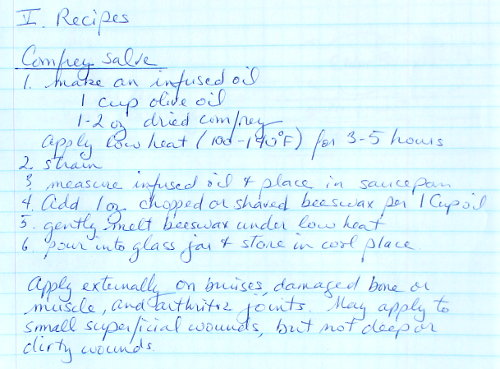 V. Recipes
Comfrey salve
1. make an infused oil
1 cup olive oil
1-2 oz dried comfrey
apply low heat (100-140°F) for 3-5 hours
2. strain
3. measure infused oil & place in saucepan
4. Add 1 oz chopped or shaved beeswax per 1 cup oil
5. gently melt beeswax under low heat
6. pour into glass jar & store in cool place
Apply externally on bruises, damaged bone or
muscle, and arthritic joints. May apply to
small superficial wounds, but not deep or
dirty wounds.